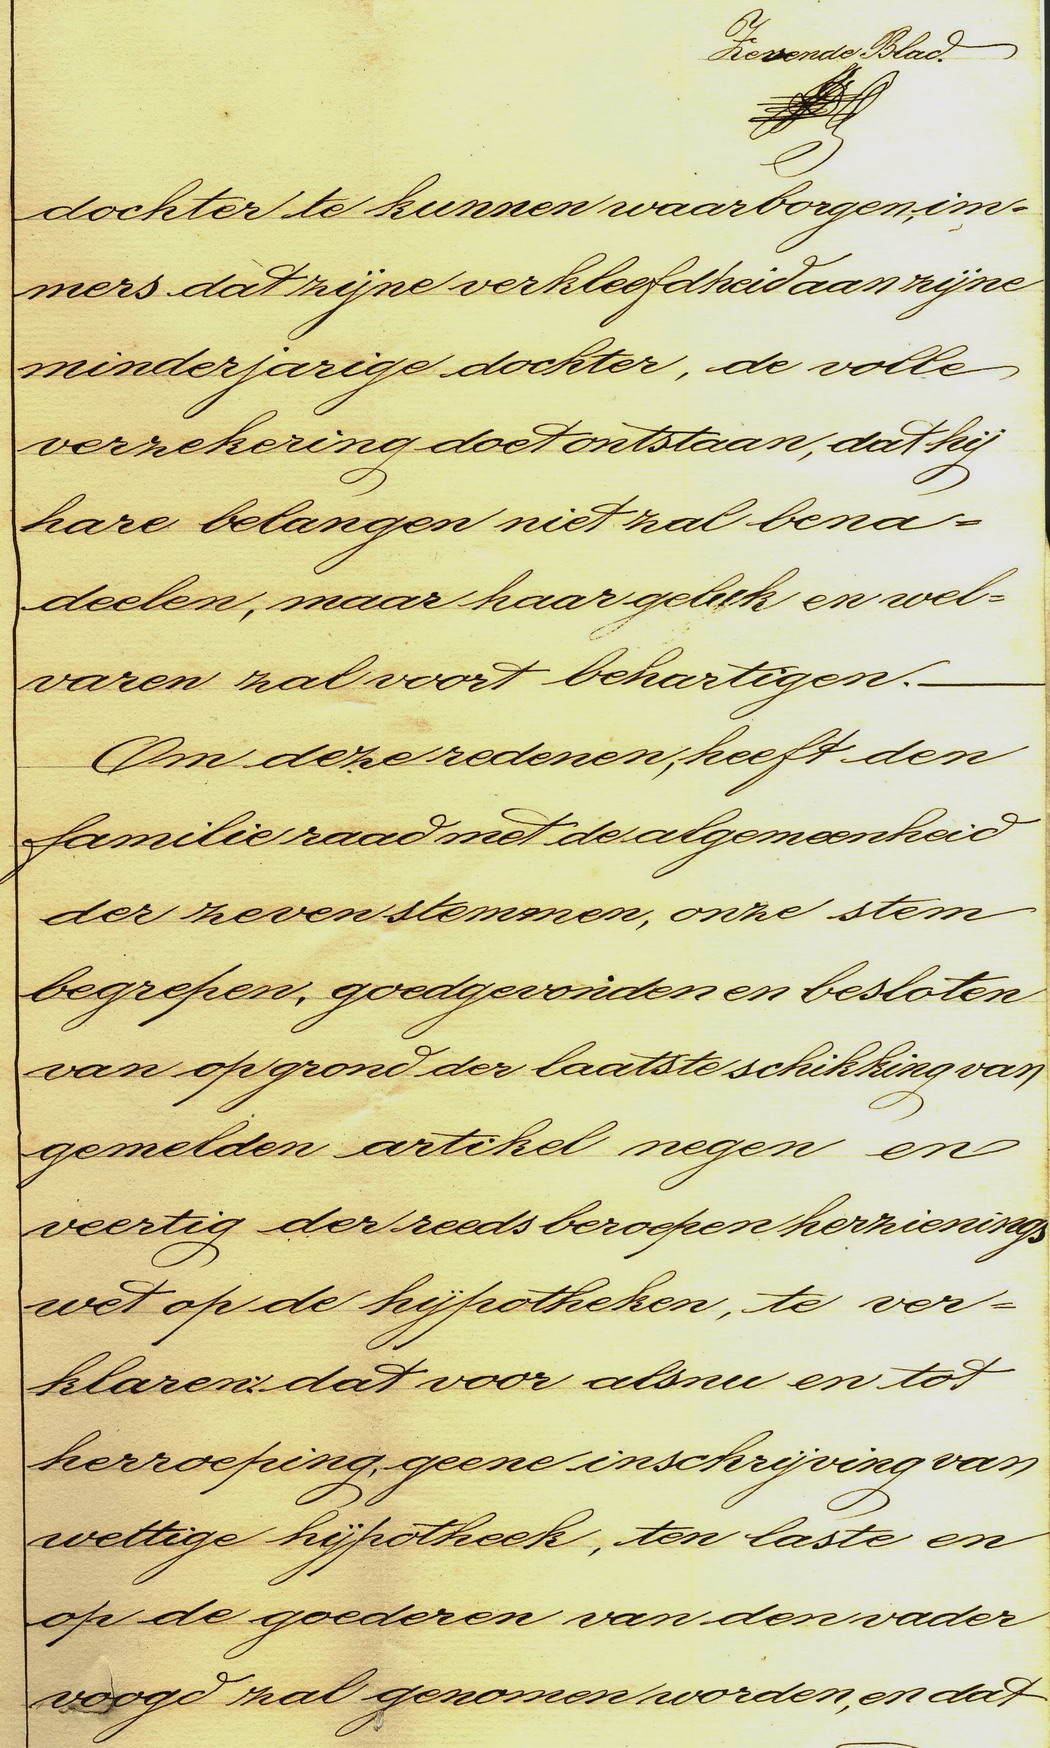 Zevende Blad.
dochter te kunnen waarborgen, im=
mers dat zijne verkleefdheid aan zijne
minderjarige dochter, de volle
verzekering doet ontstaan, dat hij
hare belangen niet zal bena=
deelen, maar haar geluk en wel=
varen zal voort behartigen.
Om deze redenen, heeft den
familieraad met de algemeenheid
der zeven stemmen, onze stem
begrepen, goedgevonden en besloten
van op grond der laatste schikking van
gemelden artikel negen en
veertig der reeds beroepen herzienings
wet op de hÿpotheken, te ver=
klaren: dat voor alsnu en tot
herroeping, geene inschrijving van
wettige hÿpotheek, ten laste en
op de goederen van den vader
voogd zal genomen worden, en dat